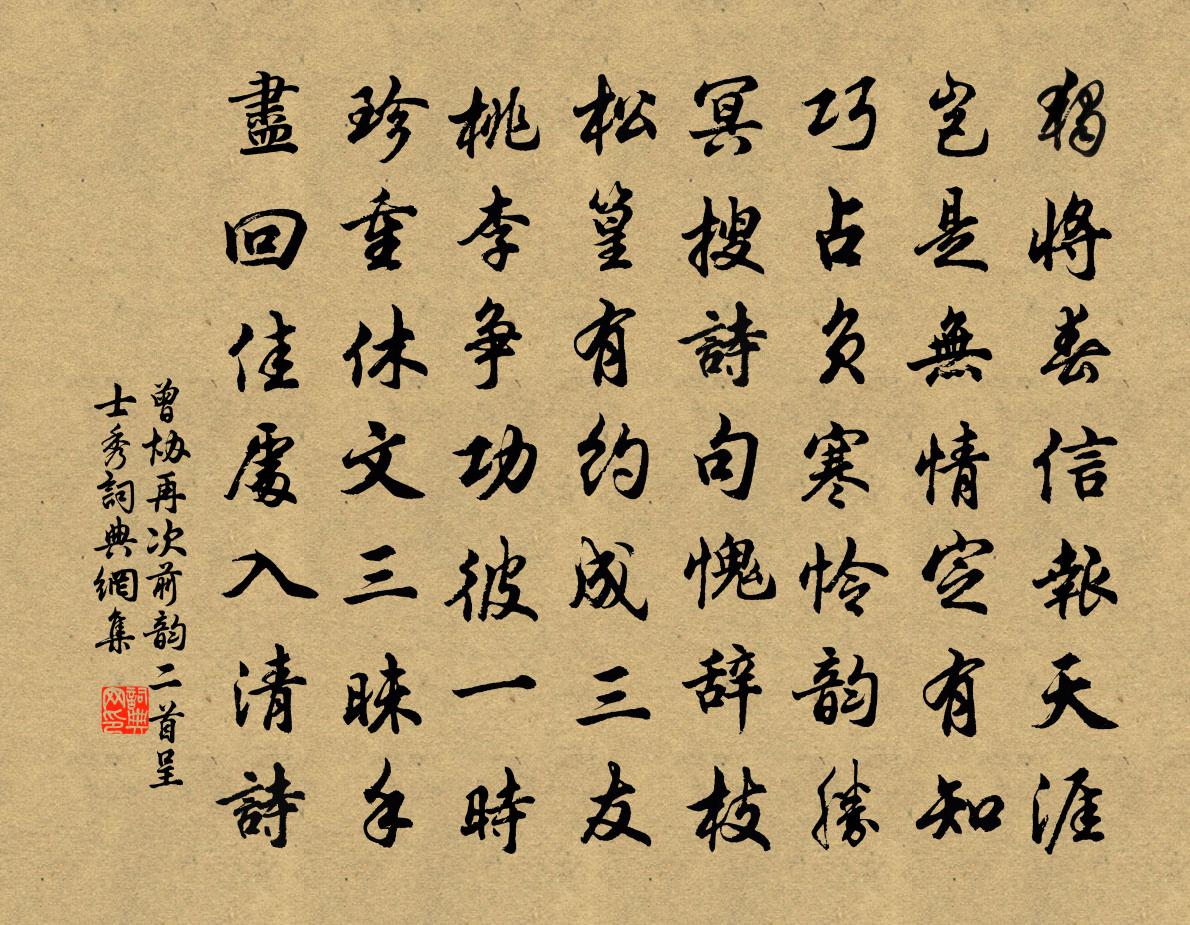 獨將春信報天涯
豈是無情定有知
巧占負寒怜韵勝
冥搜詩句愧辞枝
松篁有約成三友
桃李争功彼一時
珍重休文三昧手
盡回佳處入清詩
曾协再次前韵二首呈
士秀詞典網集
詞典网印